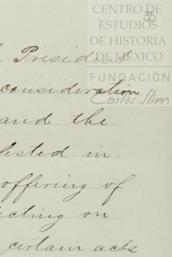 CENTRO DE
ESTUDIOS
DE HISTORIA
DE MÉXICO
FUNDACIÓN
Carlos Slim
President
consideration
and the
ested in
offering of
cting on
certain acts